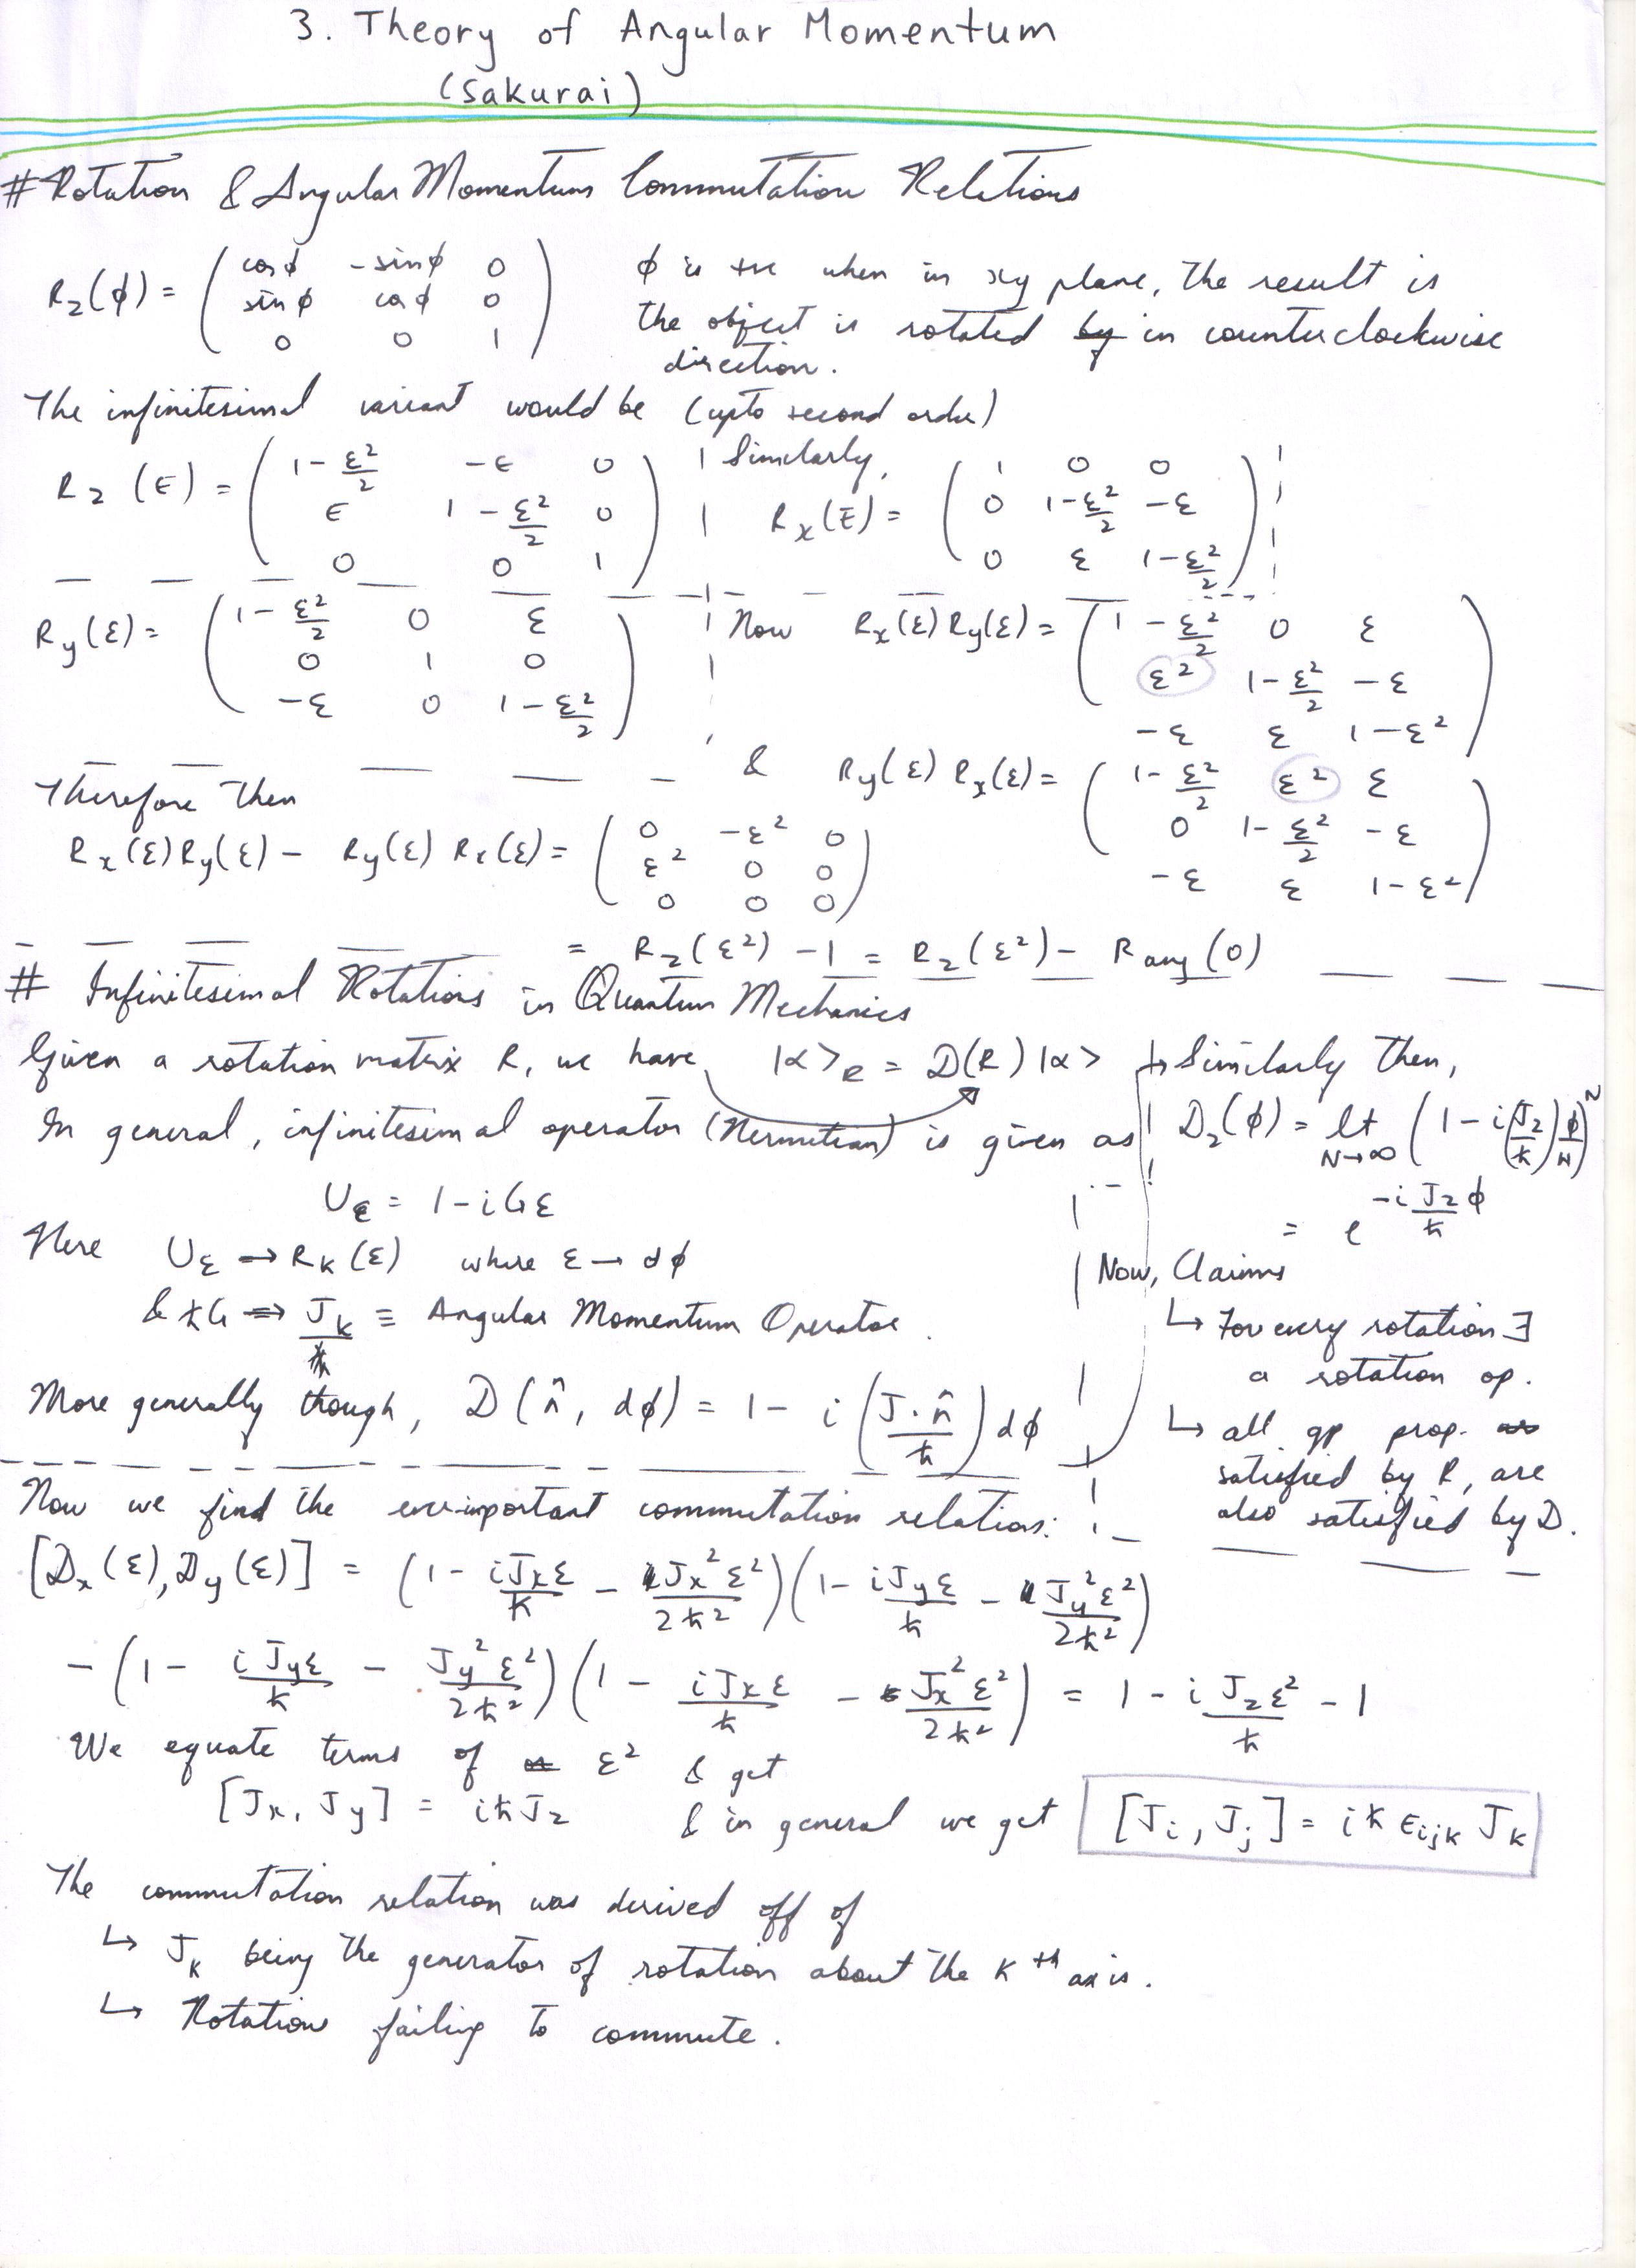 3. Theory of Angular Momentum
(Sakurai)
# Rotation & Angular Momentum Commutation Relations
R_z(φ) = ( cosφ -sinφ 0
sinφ cosφ 0
0 0 1 )
φ is +ve when in xy plane, the result is
the object is rotated in counterclockwise
direction.
The infinitesimal variant would be (upto second order)
R_z(ε) = ( 1-ε²/2 -ε 0
ε 1-ε²/2 0
0 0 1 )
Similarly,
R_x(ε) = ( 1 0 0
0 1-ε²/2 -ε
0 ε 1-ε²/2 )
R_y(ε) = ( 1-ε²/2 0 ε
0 1 0
-ε 0 1-ε²/2 )
Now R_x(ε)R_y(ε) = ( 1-ε²/2 0 ε
ε² 1-ε²/2 -ε
-ε ε 1-ε² )
& R_y(ε)R_x(ε) = ( 1-ε²/2 ε² ε
0 1-ε²/2 -ε
-ε ε 1-ε² )
Therefore then
R_x(ε)R_y(ε) - R_y(ε)R_x(ε) = ( 0 -ε² 0
ε² 0 0
0 0 0 )
= R_z(ε²) - 1 = R_z(ε²) - R_any(0)
# Infinitesimal Rotations in Quantum Mechanics
Given a rotation matrix R, we have |α>_R = D(R)|α>
In general, infinitesimal operator (Hermitian) is given as
U_ε = 1 - iGε
Here U_ε → R_k(ε) where ε → dφ
& ħG ⇒ J_k ≡ Angular Momentum Operator.
More generally though, D(n̂, dφ) = 1 - i(J·n̂/ħ)dφ
Similarly then,
D_z(φ) = lt N→∞ (1 - i(J_z/ħ)φ/N)^N
= e^(-iJ_zφ/ħ)
Now, Claims
↳ For every rotation ∃
a rotation op.
↳ all gp prop.
satisfied by R, are
also satisfied by D.
Now we find the ever-important commutation relations:
[D_x(ε), D_y(ε)] = (1 - iJ_xε/ħ - J_x²ε²/2ħ²)(1 - iJ_yε/ħ - J_y²ε²/2ħ²)
-(1 - iJ_yε/ħ - J_y²ε²/2ħ²)(1 - iJ_xε/ħ - J_x²ε²/2ħ²) = 1 - iJ_zε²/ħ - 1
We equate terms of ε² & get
[J_x, J_y] = iħJ_z & in general we get [J_i, J_j] = iħ ε_ijk J_k
The commutation relation was derived off of
↳ J_k being the generator of rotation about the k^th axis.
↳ Rotations failing to commute.